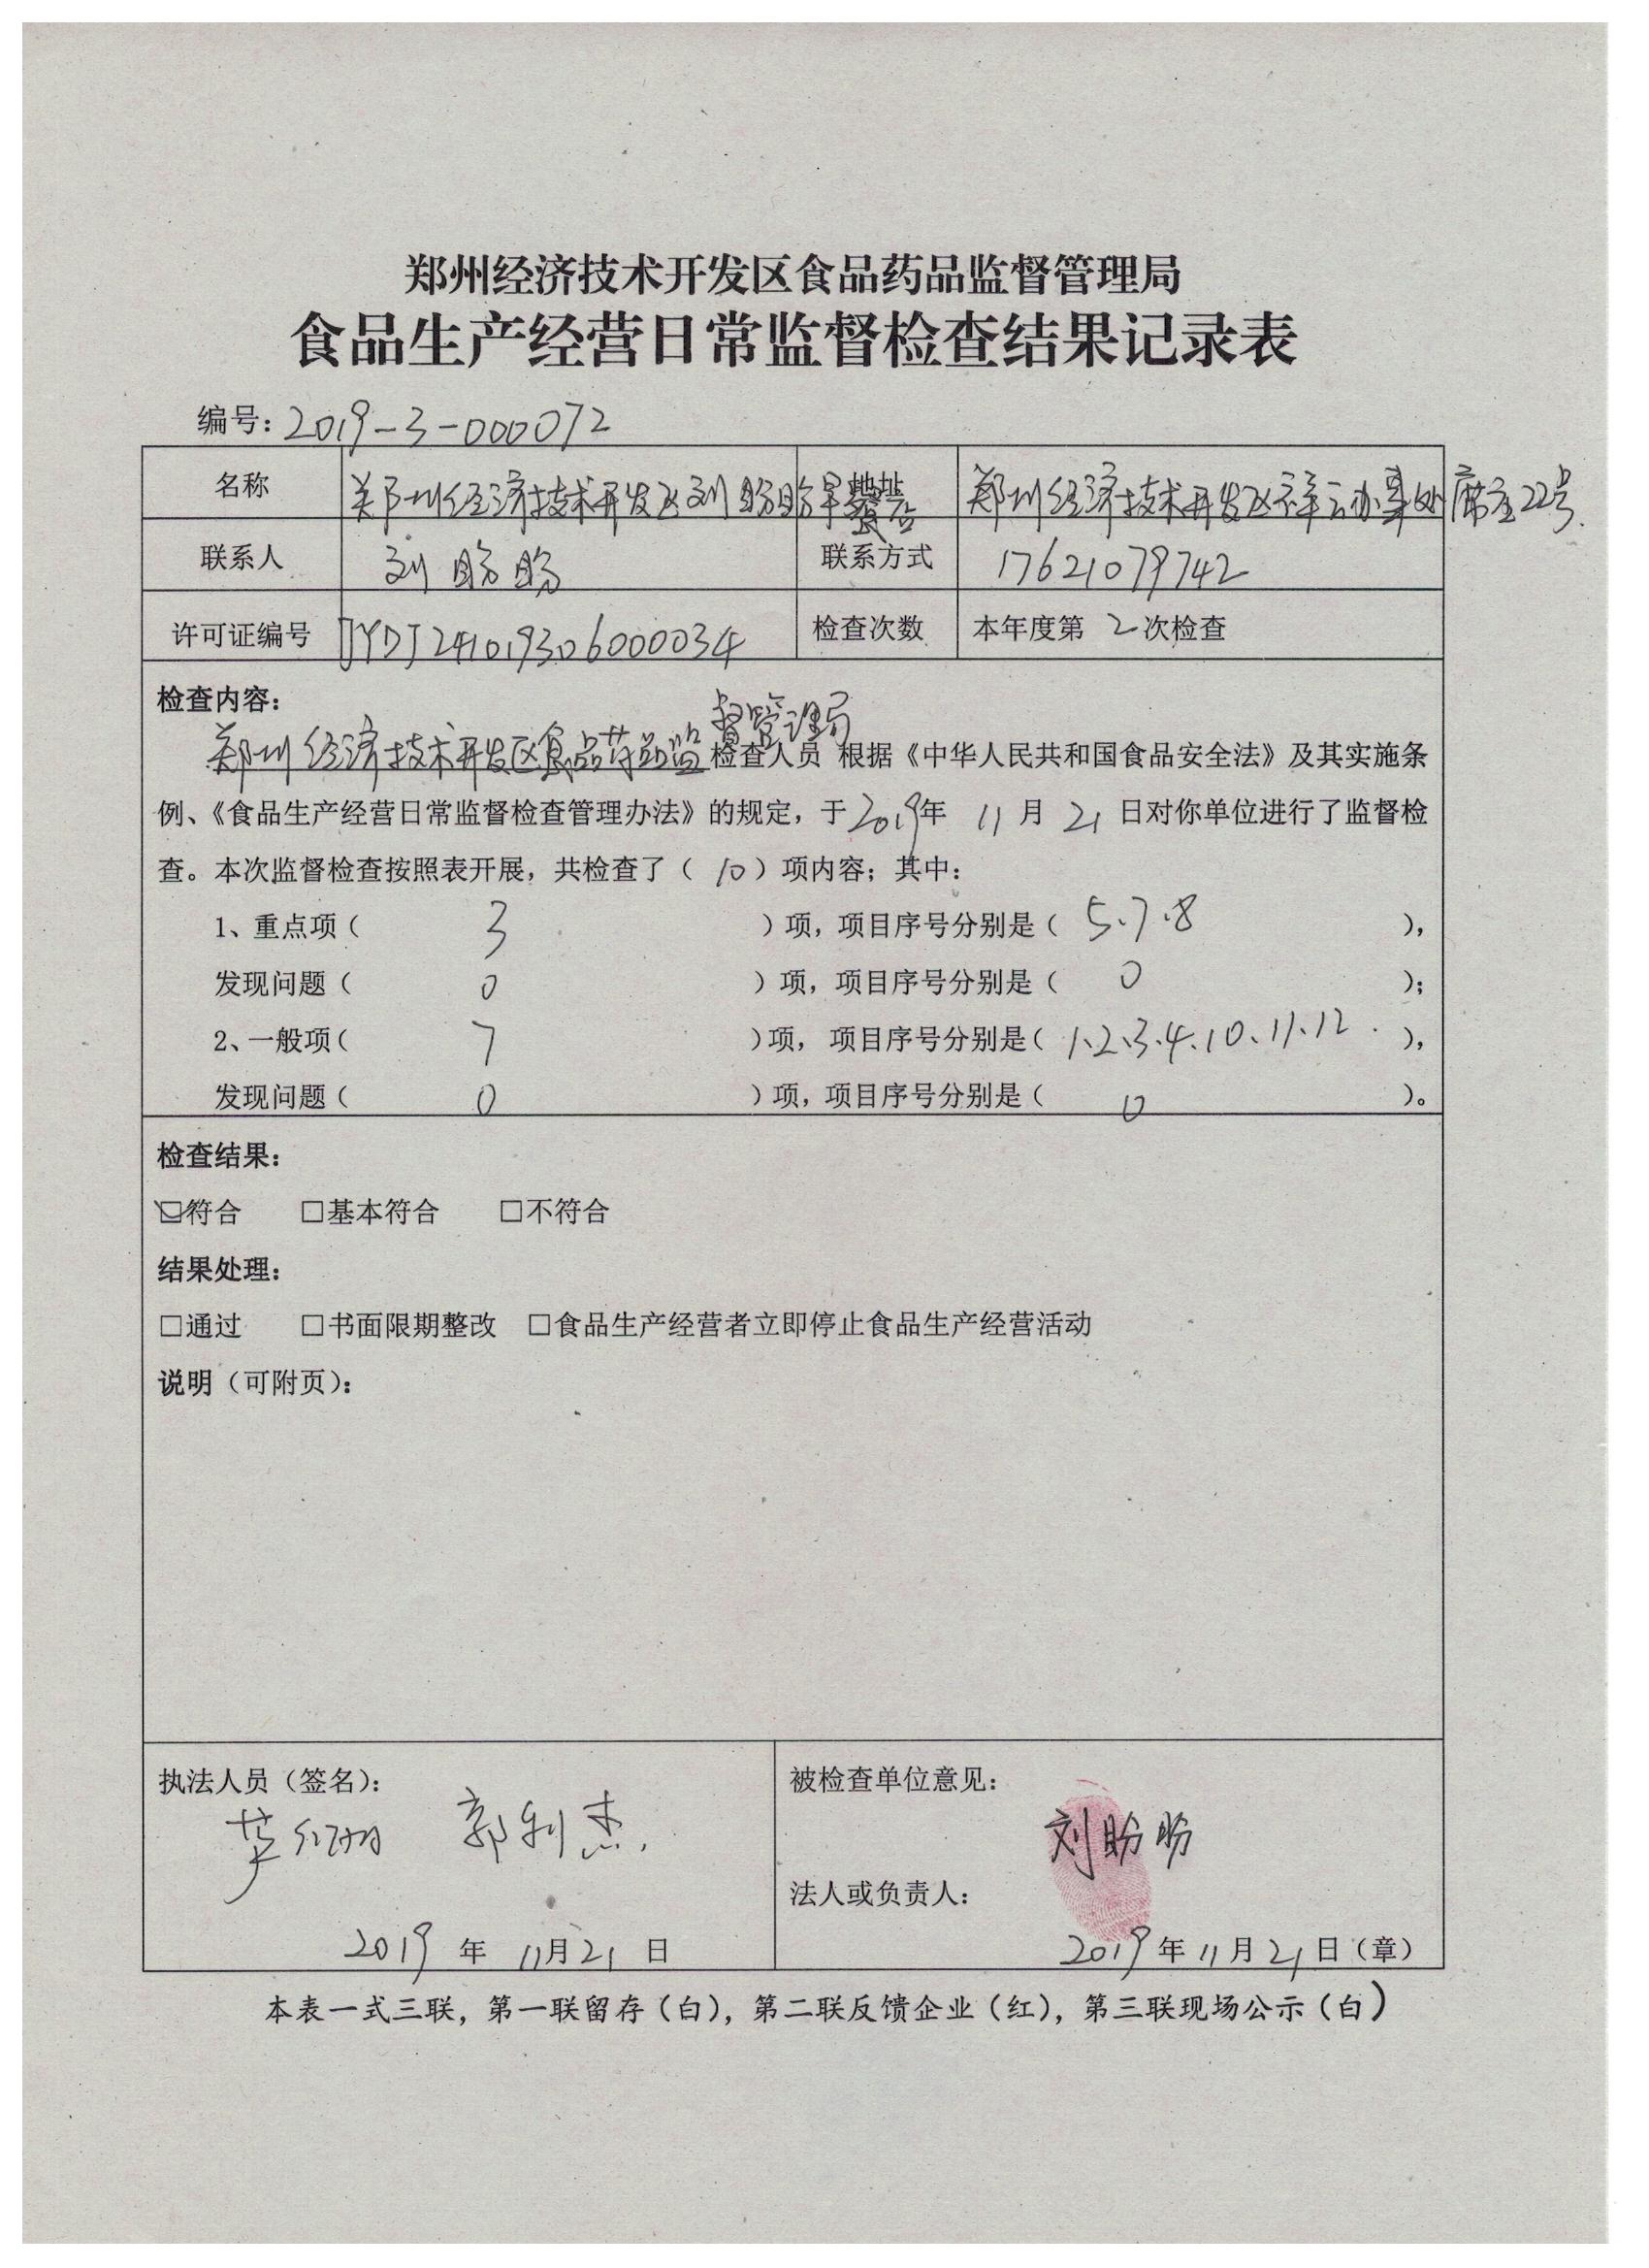 郑州经济技术开发区食品药品监督管理局
食品生产经营日常监督检查结果记录表
编号：2019-3-000072
名称 郑州经济技术开发区刘盼盼早餐店 地址 郑州经济技术开发区祥云办事处席庄22号
联系人 刘盼盼 联系方式 17621079742
许可证编号 JYDJ241019306000034 检查次数 本年度第2次检查
检查内容：
郑州经济技术开发区食品药品监督管理局检查人员 根据《中华人民共和国食品安全法》及其实施条
例、《食品生产经营日常监督检查管理办法》的规定，于2019年 11月 21日对你单位进行了监督检
查。本次监督检查按照表开展，共检查了（10）项内容；其中：
1、重点项（3）项，项目序号分别是（5、7、8），
发现问题（0）项，项目序号分别是（0）；
2、一般项（7）项，项目序号分别是（1、2、3、4、10、11、12），
发现问题（0）项，项目序号分别是（0）。
检查结果：
☑符合 □基本符合 □不符合
结果处理：
□通过 □书面限期整改 □食品生产经营者立即停止食品生产经营活动
说明（可附页）：
执法人员（签名）： 被检查单位意见：
郭利杰 刘盼盼
法人或负责人：
2019年11月21日 2019年11月21日（章）
本表一式三联，第一联留存（白），第二联反馈企业（红），第三联现场公示（白）